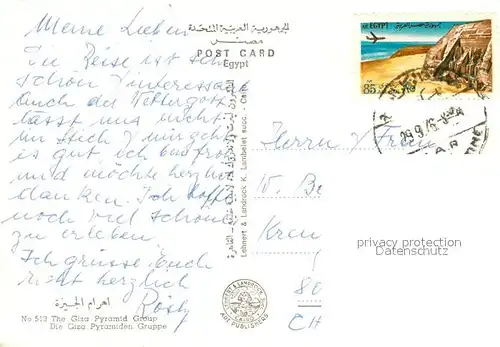 Meine Lieben
Die Reise ist sehr
schön & interessant
Auch der Wettergott
lässt uns nicht
im Stich & mir geht
es gut, ich bin froh
und möchte herzlich
danken. Ich hoffe
noch viel Schönes
zu erleben.
Ich grüsse Euch
recht herzlich
Rösly
اهرام الجيزة
No 513 The Giza Pyramid Group
Die Giza Pyramiden Gruppe
الجمهورية العربية المتحدة
مصر
POST CARD
Egypt
Lehnert & Landrock K. Lambelet succ. - Cairo
LEHNERT & LANDROCK
CAIRO
ART PUBLISHERS
A.R. EGYPT
85
29.9.76
Herrn & Frau
W. Be
Kreu
CH
privacy protection
Datenschutz